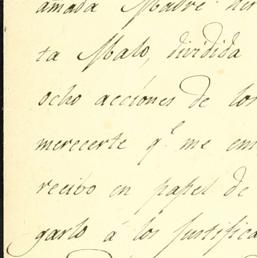 amada Madre
ta Malo, dividida
ocho acciones de los
merecerte q.e me em
recivo en papel de
garlo á los justifica